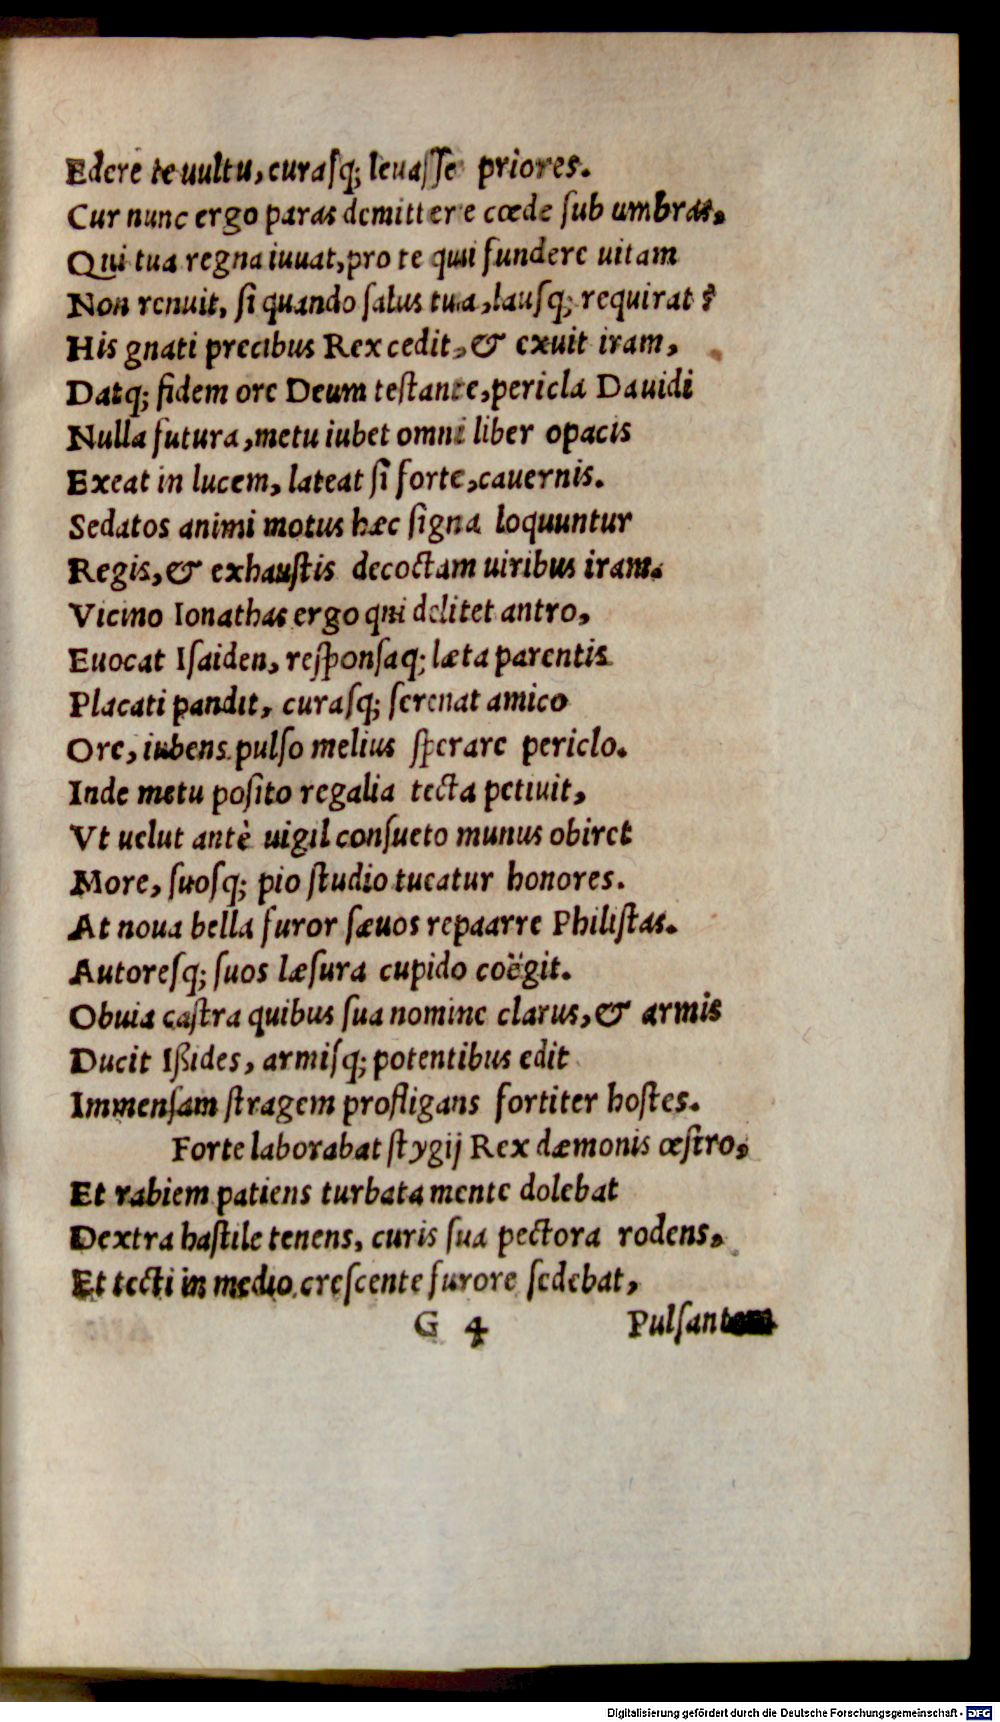 Edere te uultu, curasq; leuasse priores.
Cur nunc ergo paras demittere cœde sub umbras,
Qui tua regna iuuat, pro te qui fundere uitam
Non renuit, si quando salus tua, lausq; requirat?
His gnati precibus Rex cedit, & exuit iram,
Datq; fidem ore Deum testante, pericla Dauidi
Nulla futura, metu iubet omni liber opacis
Exeat in lucem, lateat si forte, cauernis.
Sedatos animi motus hæc signa loquuntur
Regis, & exhaustis decoctam uiribus iram.
Vicino Ionathas ergo qui delitet antro,
Euocat Isaiden, responsaq; læta parentis
Placati pandit, curasq; serenat amico
Ore, iubens pulso melius sperare periclo.
Inde metu posito regalia tecta petiuit,
Vt uelut antè uigil consueto munus obiret
More, suosq; pio studio tueatur honores.
At noua bella furor sæuos repaarre Philistas.
Autoresq; suos læsura cupido coëgit.
Obuia castra quibus sua nomine clarus, & armis
Ducit Ißides, armisq; potentibus edit
Immensam stragem profligans fortiter hostes.
Forte laborabat stygij Rex dæmonis œstro,
Et rabiem patiens turbata mente dolebat
Dextra hastile tenens, curis sua pectora rodens,
Et tecti in medio crescente furore sedebat,
G 4 Pulsantem
Digitalisierung gefördert durch die Deutsche Forschungsgemeinschaft - DFG